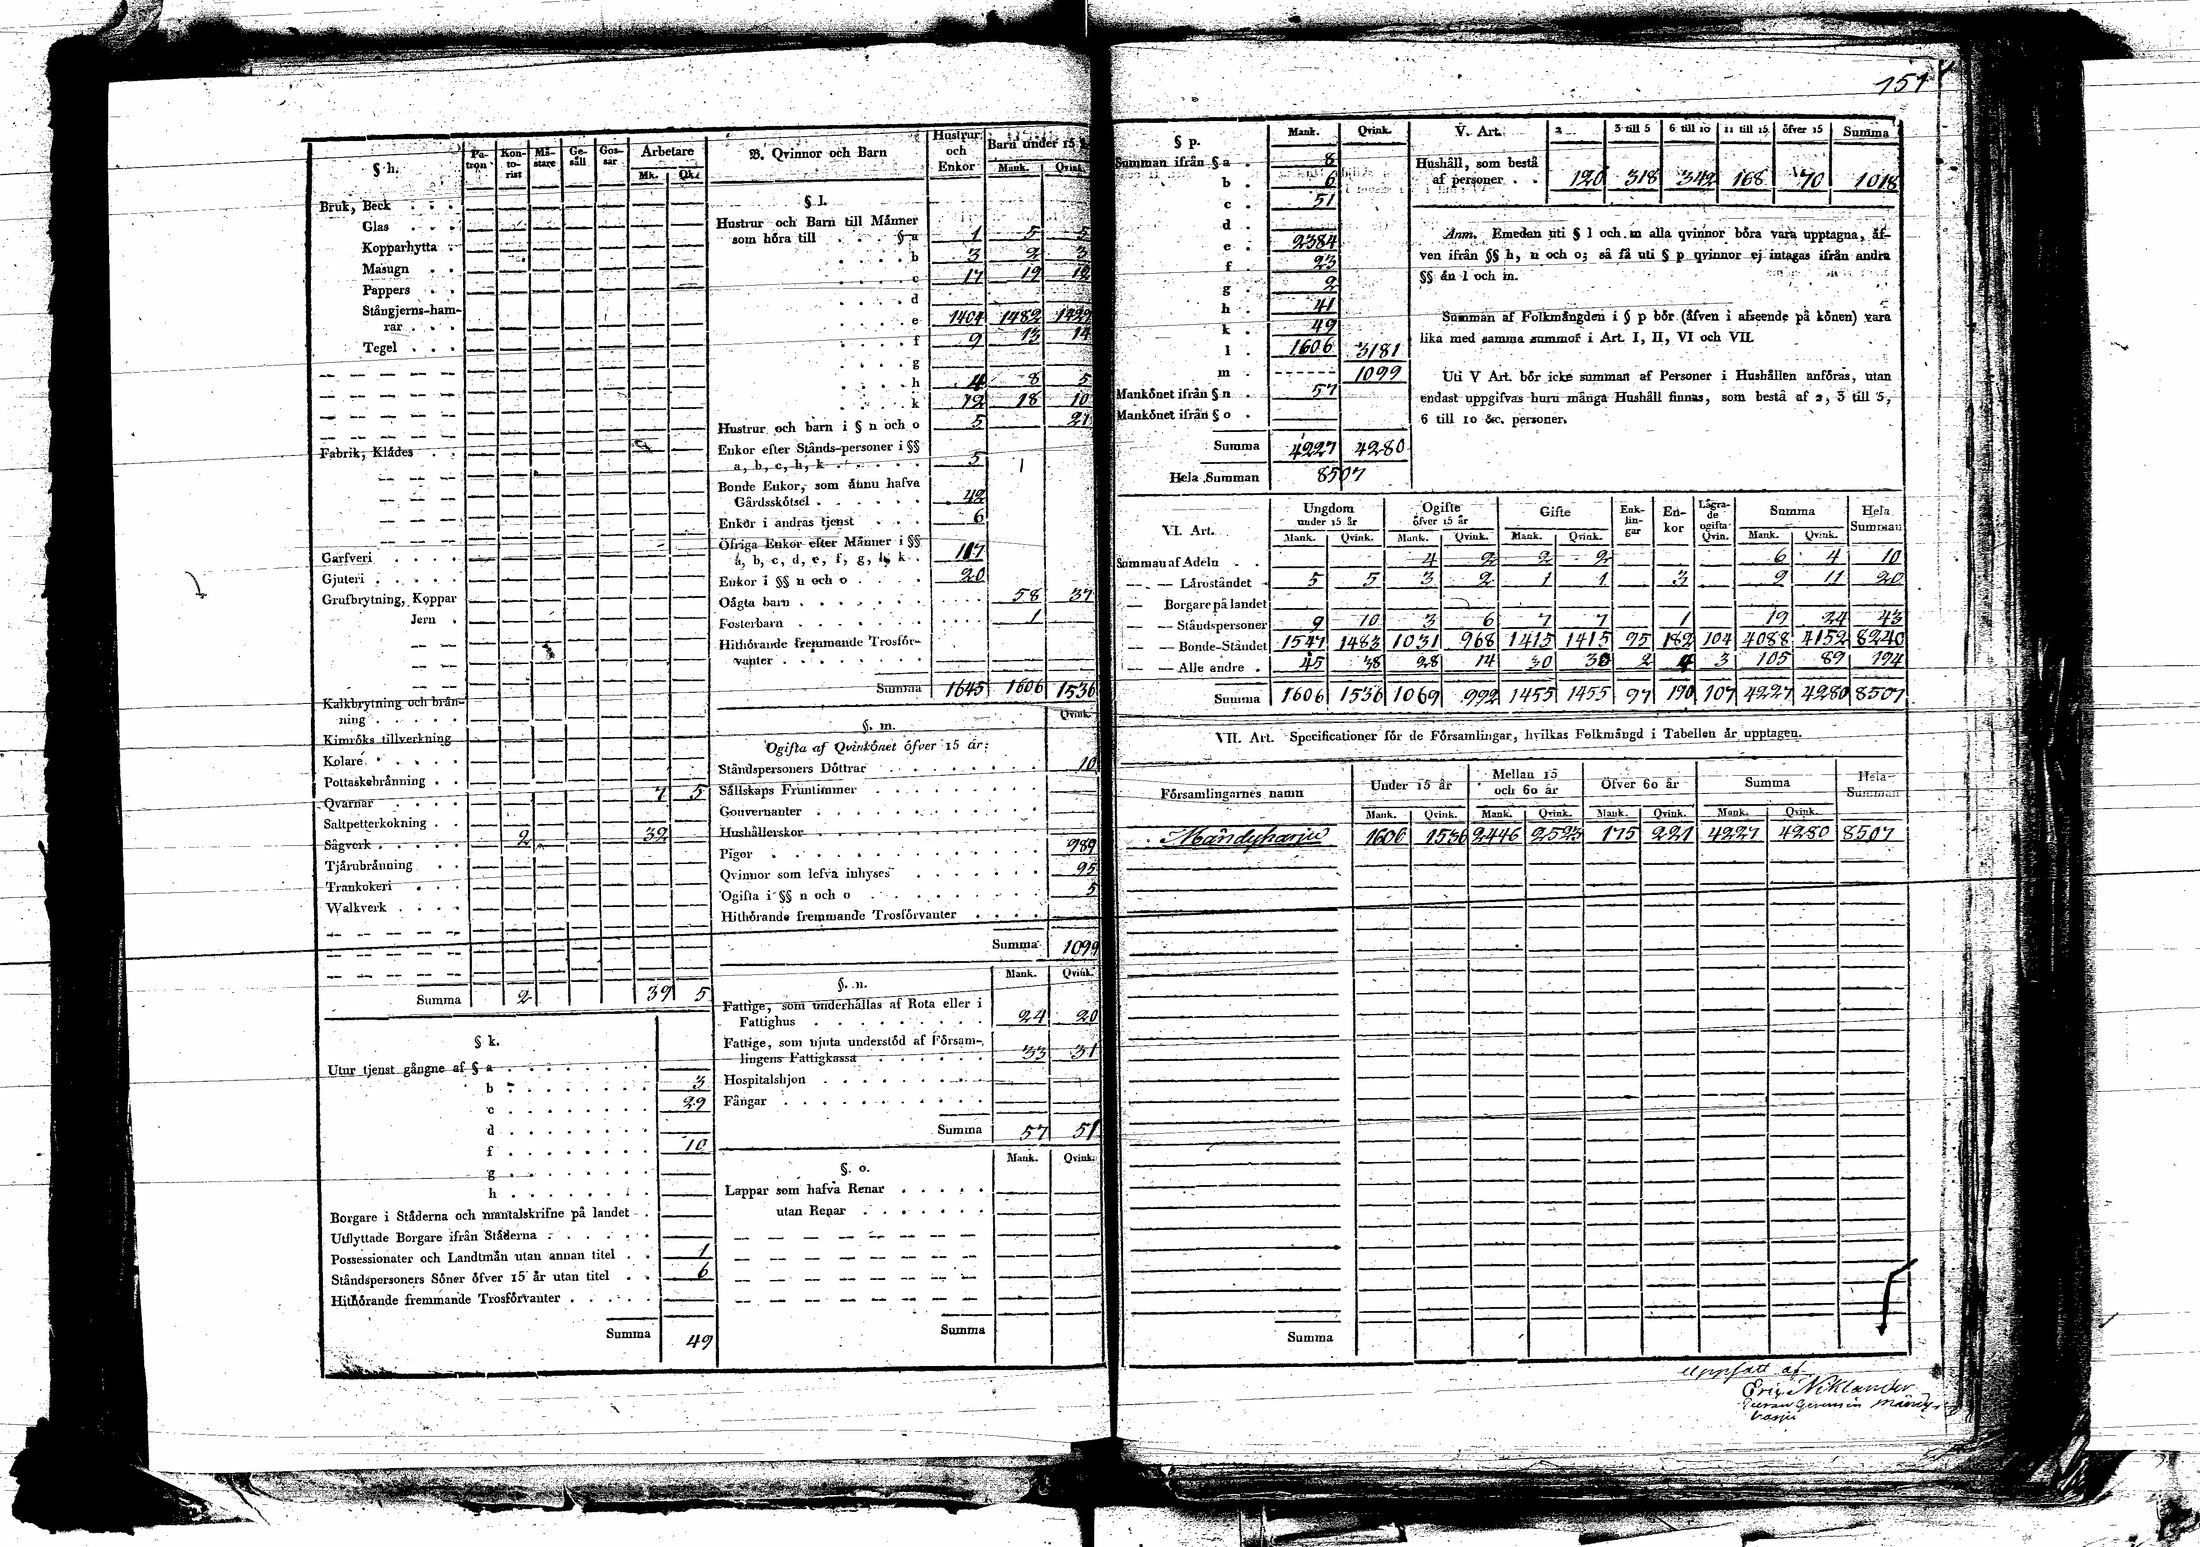 151
§ h. Pa-tron Kon-to-rist Mä-stare Ge-säll Gos-sar Arbetare Mk. Qk.
Bruk, Beck . . .
Glas . . .
Kopparhytta .
Masugn . .
Pappers . .
Stångjerns-ham-
rar . . .
Tegel . . .
Fabrik, Klädes . .
Garfveri . . . .
Gjuteri . . . . .
Grufbrytning, Koppar
Jern .
Kalkbrytning och brän-
ning . . . . .
Kimröks tillverkning
Kolare . . . . .
Pottaskebränning . .
Qvarnar . . . . 7 5
Saltpetterkokning . .
Sågverk . . . . . 2 32
Tjärubränning . .
Trankokeri . . .
Walkverk . . . .
Summa 2 39 5
§ k.
Utur tjenst gångne af § a . . . . . . . .
b . . . . . . . 3
c . . . . . . . 29
d . . . . . . .
f . . . . . . . 10
g . . . . . . .
h . . . . . . .
Borgare i Städerna och mantalskrifne på landet .
Utflyttade Borgare ifrån Städerna . . . . . .
Possessionater och Landtmän utan annan titel . . 1
Ståndspersoners Söner öfver 15 år utan titel . . 6
Hithörande fremmande Trosförvanter . . . . .
Summa 49
B. Qvinnor och Barn Hustrur och Enkor Barn under 15 Mank. Qvink.
§ l.
Hustrur och Barn till Männer
som höra till . . . § a 1 5 5
. . . . b 3 2 3
. . . . c 17 19 12
. . . . d
. . . . e 1404 1482 1429
. . . . f 9 13 14
. . . . g
. . . . h 4 8 5
. . . . k 12 18 10
Hustrur och barn i § n och o 5 21
Enkor efter Stånds-personer i §§
a, b, c, h, k . . . . . 5
Bonde Enkor, som ännu hafva
Gårdsskötsel . . . . . 42
Enkor i andras tjenst . . . 6
Öfriga Enkor efter Männer i §§
a, b, c, d, e, f, g, h, k . . 117
Enkor i §§ n och o . . . . 20
Oägta barn . . . . . . . 58 37
Fosterbarn . . . . . . . 1
Hithörande fremmande Trosför-
vanter . . . . . . . .
Summa 1645 1606 1536
§. m. Qvink.
Ogifta af Qvinkönet öfver 15 år:
Ståndspersoners Döttrar . . . . . . . . 10
Sällskaps Fruntimmer . . . . . . . .
Gouvernanter . . . . . . . . . . .
Hushållerskor . . . . . . . . . . .
Pigor . . . . . . . . . . . . . 989
Qvinnor som lefva inhyses . . . . . . . 95
Ogifta i §§ n och o . . . . . . . . . 5
Hithörande fremmande Trosförvanter . . . .
Summa 1099
§. n. Mank. Qvink.
Fattige, som underhållas af Rota eller i
Fattighus . . . . . . . . . 24 20
Fattige, som njuta understöd af Försam-
lingens Fattigkassa . . . . . . 33 31
Hospitalshjon . . . . . . . . .
Fångar . . . . . . . . . . .
Summa 57 51
§. o. Mank. Qvink.
Lappar som hafva Renar . . . . .
utan Renar . . . . . . .
Summa
§ p. Mank. Qvink.
Summan ifrån § a . 8
b . 6
c . 51
d .
e . 2384
f . 23
g . 2
h . 41
k . 49
l . 1606 3181
m . 1099
Mankönet ifrån § n . 57
Mankönet ifrån § o .
Summa 4227 4280
Hela Summan 8507
V. Art. 2 3 till 5 6 till 10 11 till 15 öfver 15 Summa
Hushåll, som bestå
af personer . . 120 318 342 168 70 1018
Anm. Emedan uti § l och m alla qvinnor böra vara upptagna, äf-
ven ifrån §§ h, n och o; så få uti § p qvinnor ej intagas ifrån andra
§§ än l och m.
Summan af Folkmängden i § p bör (äfven i afseende på könen) vara
lika med samma summor i Art. I, II, VI och VII.
Uti V Art. bör icke summan af Personer i Hushållen anföras, utan
endast uppgifvas huru många Hushåll finnas, som bestå af 2, 3 till 5,
6 till 10 &c. personer.
VI. Art. Ungdom under 15 år Ogifte öfver 15 år Gifte Enk-lin-gar En-kor Lägra-de ogifta Qvin. Summa Hela Summan
Mank. Qvink. Mank. Qvink. Mank. Qvink. Mank. Qvink.
Summan af Adeln . . 4 2 2 2 6 4 10
— — Läroståndet . 5 5 3 2 1 1 3 9 11 20
— Borgare på landet
— — Ståndspersoner 9 10 3 6 7 7 1 19 24 43
— — Bonde-Ståndet 1547 1483 1031 968 1415 1415 95 182 104 4088 4152 8240
— — Alle andre . 45 38 28 14 30 30 2 4 3 105 89 194
Summa 1606 1536 1069 992 1455 1455 97 190 107 4227 4280 8507
VII. Art. Specificationer för de Församlingar, hvilkas Folkmängd i Tabellen är upptagen.
Församlingarnes namn Under 15 år Mellan 15 och 60 år Öfver 60 år Summa Hela Summan
Mank. Qvink. Mank. Qvink. Mank. Qvink. Mank. Qvink.
Mändyharju 1606 1536 2446 2523 175 221 4227 4280 8507
Summa
Uppsatt af
Eric Niklander